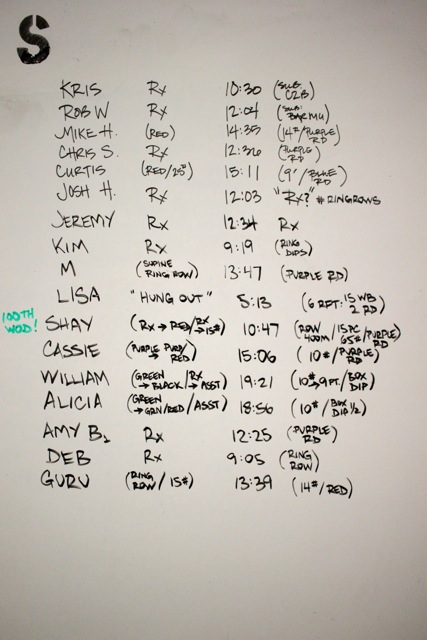 S
KRIS Rx 10:30 (SUB: C2B)
ROB W Rx 12:04 (SUB: BAR MU)
MIKE H. (RED) 14:35 (14#/PURPLE RD)
CHRIS S. Rx 12:36 (PURPLE RD)
CURTIS (RED/25#) 15:11 (9'/BLUE RD)
JOSH H. Rx 12:03 "Rx?" #RINGROWS
JEREMY Rx 12:34 Rx
KIM Rx 9:19 (RING DIPS)
M (SUPINE RING ROW) 13:47 (PURPLE RD)
LISA "HUNG OUT" 5:13 (6 RPT: 15 WB 2 RD)
100TH WOD! SHAY (Rx → RED/RX → 15#) 10:47 (ROW 400M/15 PC 65#/PURPLE RD)
CASSIE (PURPLE → PURP/RED) 15:06 (10#/PURPLE RD)
WILLIAM (GREEN → BLACK/RX → ASST) 19:21 (10# → 9FT/BOX DIP)
ALICIA (GREEN → GRN/RED/ASST) 18:56 (10#/BOX DIP 1/2)
AMY B. Rx 12:25 (PURPLE RD)
DEB Rx 9:05 (RING ROW)
GURU (RING ROW/15#) 13:39 (14#/RED)